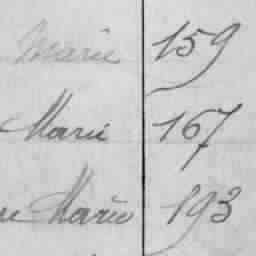 Marie 159
Marie 167
Marie 193